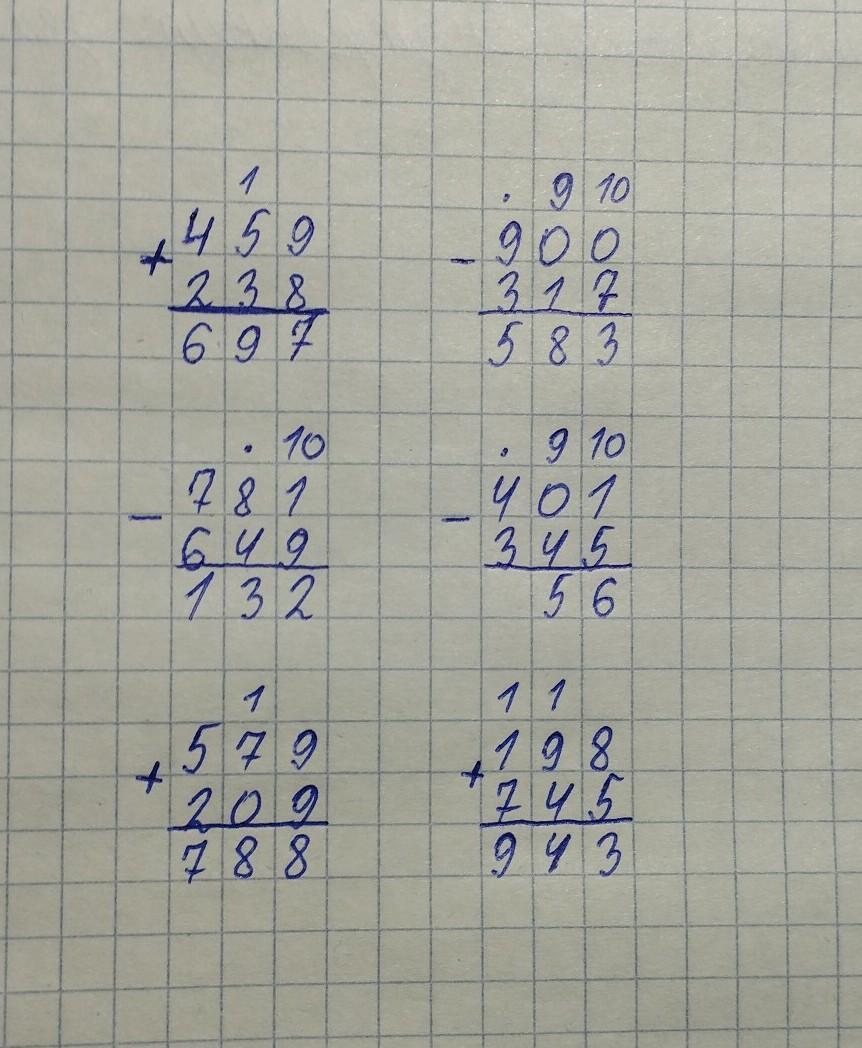 1 . 9 10
+ 459 - 900
238 317
697 583
. 10 . 9 10
- 781 - 401
649 345
132 56
1 1 1
+ 579 + 198
209 745
788 943